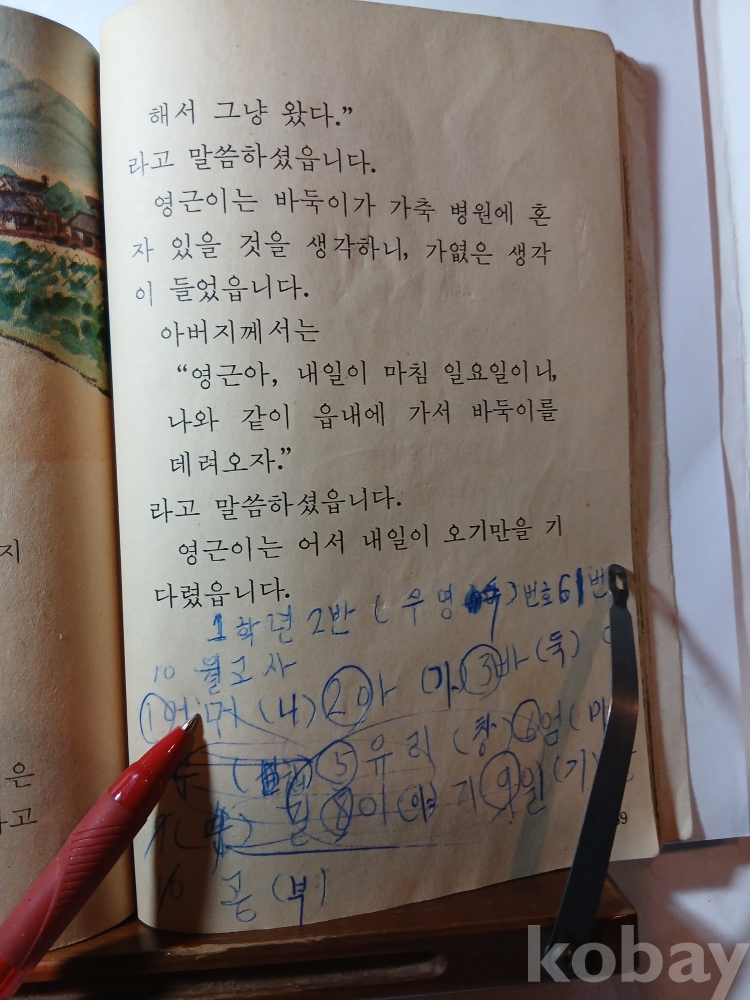 해서 그냥 왔다.”
라고 말씀하셨읍니다.
영근이는 바둑이가 가축 병원에 혼
자 있을 것을 생각하니, 가엾은 생각
이 들었읍니다.
아버지께서는
“영근아, 내일이 마침 일요일이니,
나와 같이 읍내에 가서 바둑이를
데려오자.”
라고 말씀하셨읍니다.
영근이는 어서 내일이 오기만을 기
다렸읍니다.
지
은
고
1학년 2반 ( 우영 ) 번호 61번
10 월고사
① 머 (나) ② 아 ③ 바 (둑)
⑤ 유리 (창) ⑥ 엄 (마
⑧ 아 지 ⑨ 원 (기)
공 (부)
9
kobay